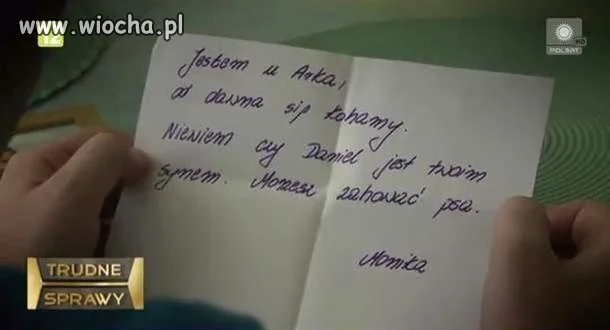 www.wiocha.pl
12
POLSAT HD
Jestem u Arka,
od dawna się kohamy.
Niewiem czy Daniel jest twoim
synem. Możesz zahować psa.
Monika
TRUDNE
SPRAWY